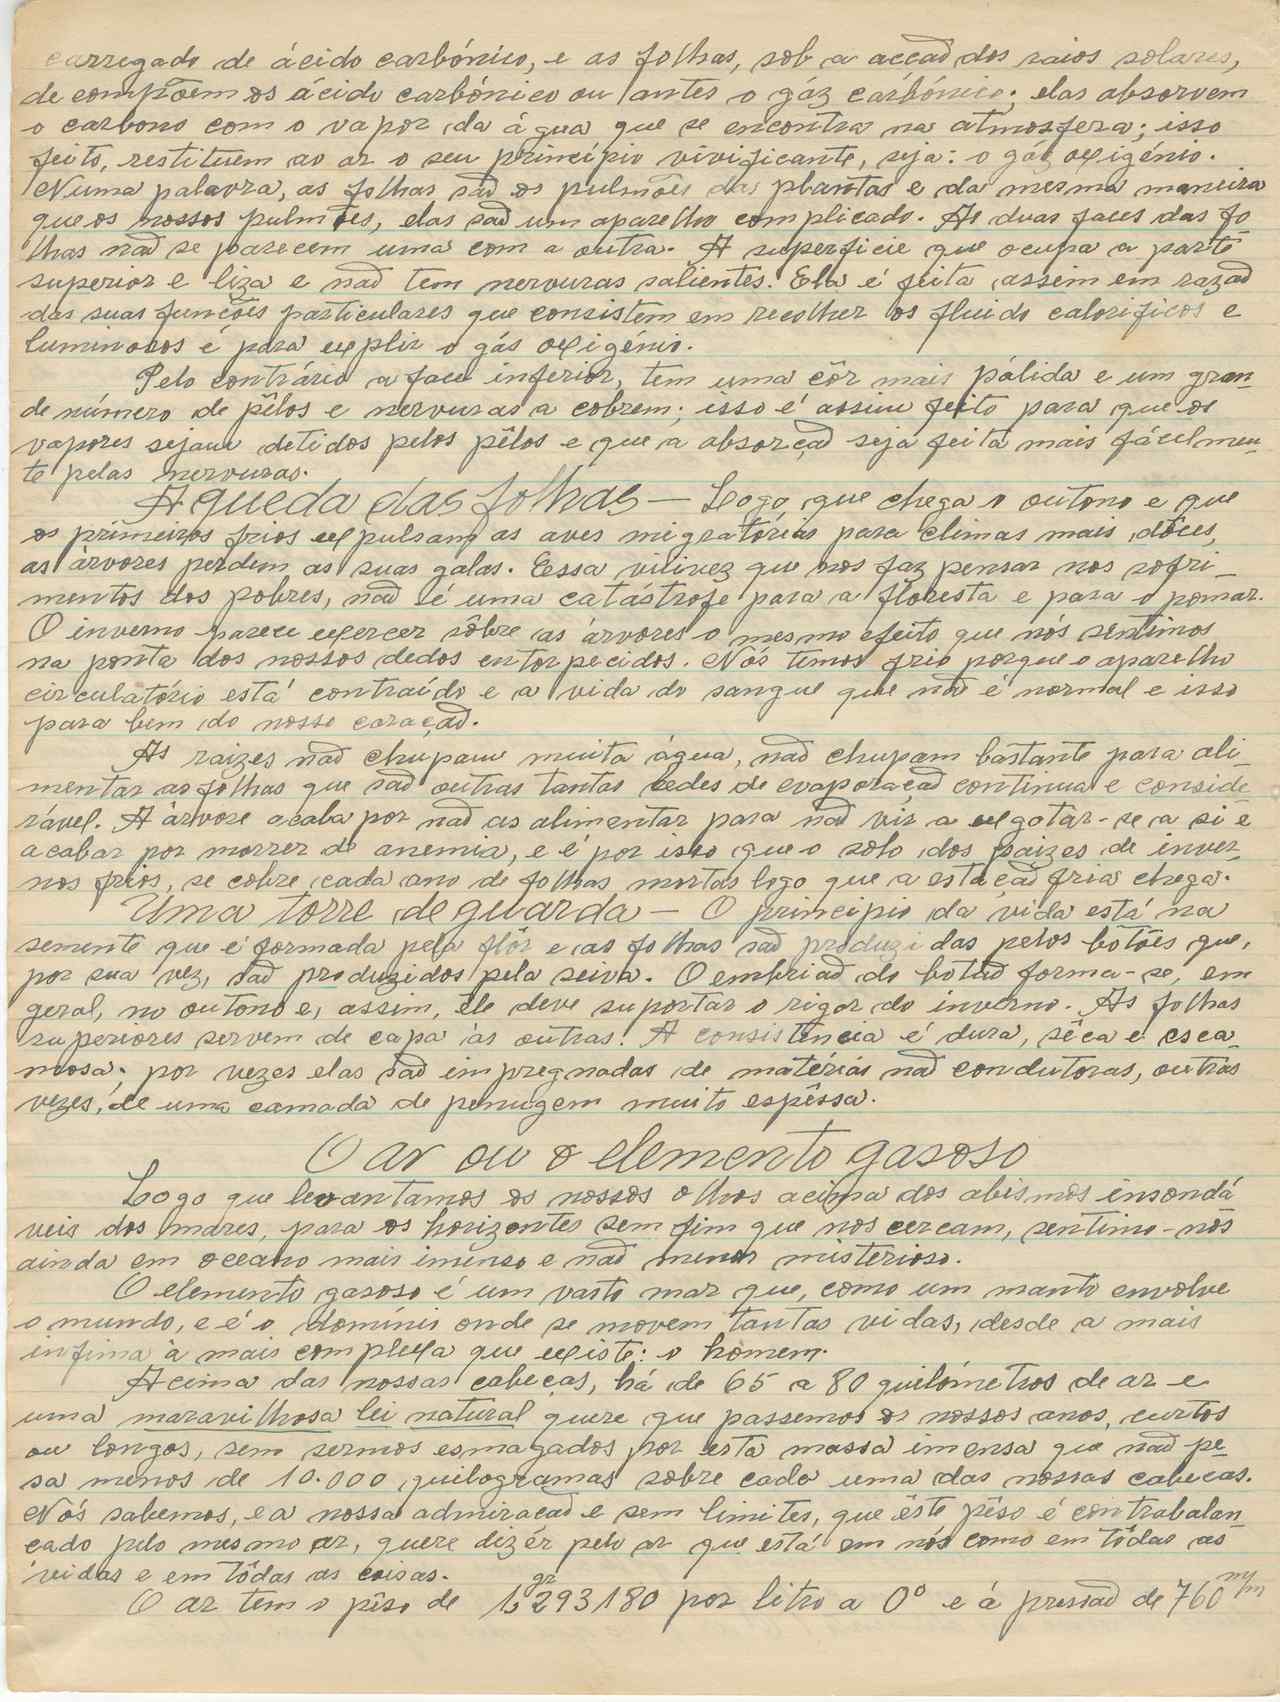 carregado de ácido carbónico, e as folhas, sob a acção dos raios solares,
de compõem os ácido carbónico ou antes o gáz carbónico; elas absorvem
o carbono com o vapor da água que se encontra na atmosfera; isso
feito, restituem ao ar o seu princípio vivificante, seja: o gáz oxigénio.
Numa palavra, as folhas são os pulmões das plantas e da mesma maneira
que os nossos pulmões, elas são um aparelho complicado. As duas faces das fo
lhas não se parecem uma com a outra. A superficie que ocupa a parte
superior e liza e não tem nervuras salientes. Ela é feita assim em razão
das suas funções particulares que consistem em recolher os fluido calorificos e
luminosos é para explir o gás oxigénio.
Pelo contrário a face inferior, tem uma côr mais pálida e um gran-
de número de pêlos e nervuras a cobrem; isso é assim feito para que os
vapores sejam detidos pelos pêlos e que a absorção seja feita mais fácilmen-
te pelas nervuras.
A queda das folhas — Logo que chega o outono e que
os primeiros frios expulsam as aves migratórias para climas mais dôces,
as árvores perdem as suas galas. Essa viuvez que nos faz pensar nos sofri-
mentos dos pobres, não é uma catástrofe para a floresta e para o pomar.
O inverno parece exercer sôbre as árvores o mesmo efeito que nós sentimos
na ponta dos nossos dedos entorpecidos. Nós temos frio porque o aparelho
circulatório está contraído e a vida do sangue que não é normal e isso
para bem do nosso coração.
As raizes não chupam muita água, não chupam bastante para ali-
mentar as folhas que são outras tantas sedes de evaporação continua e conside-
rável. A árvore acaba por não as alimentar para não vir a exgotar-se a si e
acabar por morrer de anemia, e é por isso que o solo dos paizes de inver-
nos frios, se cobre cada ano de folhas mortas logo que a estação fria chega.
Uma torre de guarda — O principio da vida está na
semente que é formada pela flôr e as folhas são produzidas pelos botões que,
por sua vez, são produzidos pela seiva. O embrião do botão forma-se, em
geral, no outono e, assim, ele deve suportar o rigor do inverno. As folhas
superiores servem de capa às outras. A consistência é dura, sêca e esca-
mosa; por vezes elas são impregnadas de matérias não condutoras, outras
vezes, de uma camada de penugem muito espêssa.
O ar ou o elemento gasoso
Logo que levantamos os nossos olhos acima dos abismos insondá
veis dos mares, para os horizontes sem fim que nos cercam, sentimo-nos
ainda em oceano mais imenso e não menor misterioso.
O elemento gasoso é um vasto mar que, como um manto envolve
o mundo, e é o domínio onde se movem tantas vidas, desde a mais
infima à mais complexa que existe: o hômem.
Acima das nossas cabeças, há de 65 a 80 quilómetros de ar e
uma maravilhosa lei natural quere que passemos os nossos anos, curtos
ou longos, sem sermos esmagados por esta massa imensa que não pe-
sa menos de 10.000 quilogramas sobre cada uma das nossas cabeças.
Nós sabemos, e a nossa admiração e sem limites, que êste pêso é contrabalan
çado pelo mesmo ar, quere dizér pelo ar que está em nós como em tôdas as
vidas e em tôdas as coisas.
O ar tem o pêso de 1,gr293180 por litro a 0º e á pressão de 760 m/m